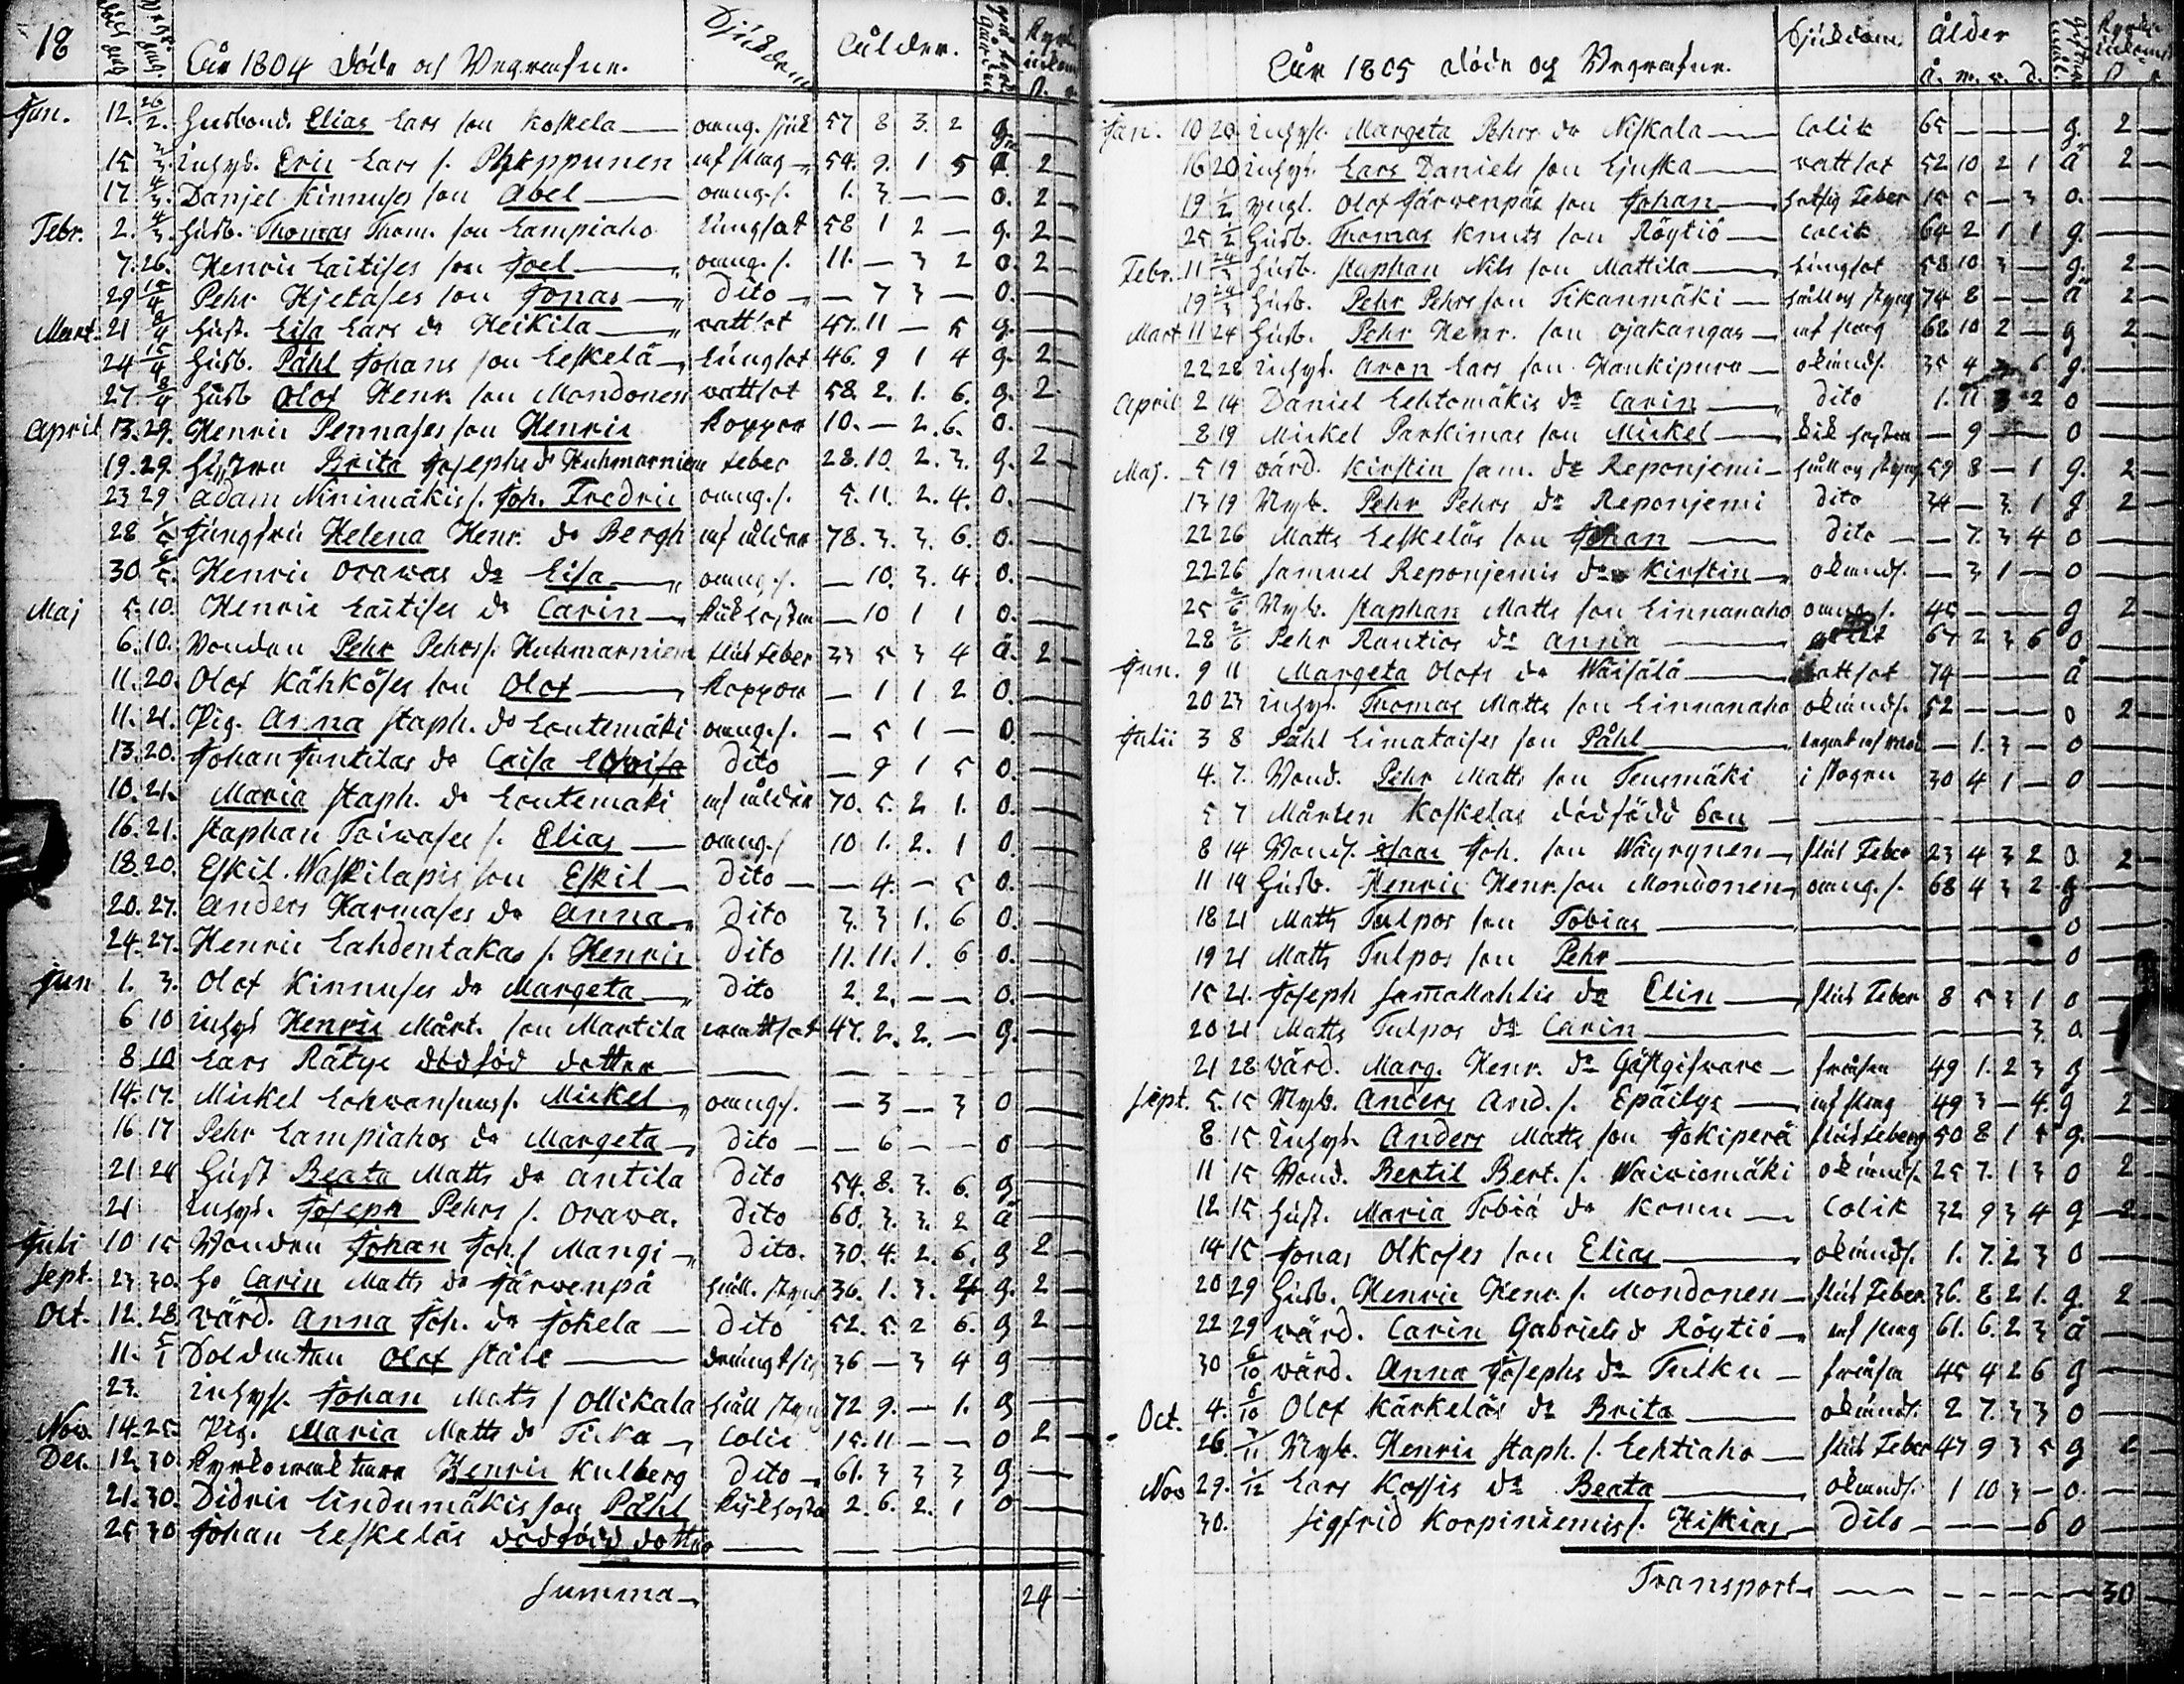 18 Åhr 1804 döde och Begrafne. Sjukdom ålder.
Jan. 12. 26/2. Husbond. Elias Lars son Koskela — 57 8 3. 2 g.
15 2/3. Inhys. Eric Lars s. Pheppunen af slag 54. 9. 1 5 2
17 4/3. Daniel Kinnuses son Abel — omng.s. 1. 3 — — o. 2
Febr. 2. 4/3. Husb. Thomas Thom. son Lampiaho lungsot 58 1 2 — g. 2
7. 26. Henric Laitises son Joel — omng.s. 11. — 3 2 o. 2
29 15/4 Pehr Hjetases son Jonas — Dito — 7 3 — o.
Mart. 21 8/4 Hust. Lisa Lars dr Heikila — wattsot 47. 11 — 5 g.
24 15/4 Husb. Påhl Johans son Leskelä — Lungsot 46. 9 1 4 g. 2
27. 8/4 Husb Olof Henr. son Mondonen wattsot 58. 2. 1. 6. g. 2
April 13. 29. Henric Pennases son Henric koppor 10. — 2. 6. o.
19. 29. Hustru Brita Josephs dr Huhmarniem feber 28. 10. 2. 3. g. 2
23 29 Adam Niinimäkis s. Joh. Fredric omng.s. 5. 11. 2. 4. o.
28 1/5 Jungfru Helena Henr. dr Bergh af ålder 78. 3. 3. 6. o.
30. 6/5. Henric Orawas dr Lisa — omng.s. — 10. 3. 4. o.
Maj 5. 10. Henric Laitises dr Carin — kikhostan — 10 1 1 o.
6. 10. Bonden Pehr Pehrs s. Huhmarniem fläckfeber 33 5 3 4 ä. 2
11. 20. Olof Kähköses son Olof — koppor — 1 1 2 o.
11. 21. Pig. Anna Staph. dr Loutemäki omng.s. — 5 1 — o.
13. 20. Johan Juntilas dr Caisa Lovisa Dito — 9 1 5 o.
10. 21. Maria Staph. dr Loutemäki af ålder 70. 5. 2 1. o.
16. 21. Staphan Toiwases s. Elias — omng.s 10 1. 2. 1 o.
18. 20. Eskil Waskilapis son Eskil — Dito — — 4. — 5 o.
20. 27. Anders Harmases dr Anna — Dito 3. 3 1. 6 o.
24. 27. Henric Lahdentakas s. Henric Dito 11. 11. 1. 6 o.
Jun 1. 3. Olof Kinnuses dr Margeta — Dito 2. 2. — — o.
6 10 Inhys Henric Mårt. son Martila wattsot 47. 2. 2. — g.
8 10 Lars Rätys dödfödd dotter
14. 17. Mickel Lohwansuus s. Mickel omng.s. — 3 — 3 o
16 17 Pehr Lampiahos dr Margeta — Dito — — 6 — — o
21 24 Hust Beata Matts dr Antila Dito 54. 8. 3. 6. g.
21 Inhys. Joseph Pehrs s. Orawa. Dito 60. 3. 3. 2 ä
Juli 10 15 Bonden Johan Joh. s Mangi — Dito. 30. 4. 2. 6. g 2
Sept. 23 30. Ho Carin Matts dr Järwenpä håll. styng 36. 1. 3. 4 g. 2
Oct. 12. 28. Wärd. Anna Joh. dr Jokela — Dito 52. 5. 2 6. g 2
11. 5/1 Soldaten Olof Ståle — 36 — 3 4 g
23. Inhys. Johan Matts s Ollikala håll styng 72 9. — 1. g
Nov. 14. 25. Pig. Maria Matts dr Ticka — Colic 15. 11 — — o 2
Dec. 12. 30. Kyrkowäktaren Henric Kulberg Dito — 61. 3 3 3 g.
21. 30. Didric Lindumäkis son Påhl kikhosta 2. 6. 2. 1 o
25 30 Johan Leskeläs dödfödd dotter
Summa — 24
Åhr 1805 döde och Begrafne. Sjukdom. ålder å. m. v. d.
Jan. 10 20 Inhys. Margeta Pehrs dr Niskala — Colik 65 — — — g. 2
16 20 Inhys. Lars Daniels son Ljuska — wattsot 52 10 2 1 ä 2
19 1/2 yngl. Olof Järwenpäs son Johan — hetsig Feber 15 5 — 3 o.
25 1/2 Husb. Thomas Knuts son Röytiö — Colik 64 2 1 1 g.
Febr. 11 24/3 Husb. Staphan Nils son Mattila — Lungsot 58 10 3 — g. 2
19 24/3 Husb. Pehr Pehrs son Tikanmäki — håll och styng 74 8 — — ä 2
Mart 11 24 Husb. Pehr Henr. son Ojakangas — af slag 62 10 2 — g 2
22 28 Inhys. Aron Lars son Hankipuro — okänds. 35 4 3 6 g.
April 2 14 Daniel Lehtomäkis dr Carin — dito 1. 11 3 2 o
8 19 Mickel Parkimas son Mickel — kikhostan — 9 — — o
Maj. 5 19 Wärd. Kirstin Sam. dr Reponjemi — håll och styng 59 8 — 1 g. 2
13 19 Nyb. Pehr Pehrs dr Reponjemi dito 34 — 3 1 g 2
22 26 Matts Leskeläs son Johan — dito — — 7. 3 4 o
22 26 Samuel Reponjemis dr Kirstin — okänds. — 3 1 — o
25 2/6 Nyb. Staphan Matts son Linnanaho omng.s. 45 — — — g 2
28 2/6 Pehr Rautios dr Anna — 67 2 3 6 o
Jun. 9 11 Margeta Olofs dr Wäisälä — wattsot 74 — — — ä
20 23 Inhys. Thomas Matts son Linnanaho okänds. 52 — — — o 2
Julii 3 8 Påhl Limataises son Påhl — — 1. 3 — o
4. 7. Bond. Pehr Matts son Tensmäki i skogen 30 4 1 — o
5 7 Mårten Koskelas dödfödd son
8 14 Bonds. Isaac Joh. son Wäyrynen — fläck Feber 23 4 3 2 o. 2
11 14 Husb. Henric Henr. son Mondonen — omng.s. 68 4 3 2 g
18 21 Matts Tulpos son Tobias — o
19 21 Matts Tulpos son Pehr — o
15 21. Joseph Samallahtis dr Elin — fläck Feber 8 5 3 1 o
20 21 Matts Tulpos dr Carin — 3. o
21 28 Wärd. Marg. Henr. dr Gästgifware — frossa 49 1. 2 3 g
Sept. 5. 15 Nyb. Anders And. s. Epäilys — af slag 49 3 — 4. g 2
8 15 Inhys. Anders Matts son Jokiperä fläckfeber 50 8 1 5 g.
11 15 Bond. Bertil Bert. s. Waiviomäki okänds. 25 7. 1 3 o 2
12 15 Hust. Maria Tobiä dr Komu — Colik 32 9 3 4 g 2
14 15 Jonas Olkoses son Elias — okänds. 1. 7. 2 3 o
20 29 Husb. Henric Henr. s. Mondonen — fläck Feber 36. 8 2 1. g. 2
22 29 Wärd. Carin Gabriels dr Röytiö — af slag 61. 6. 2 3 ä
30 6/10 Wärd. Anna Josephs dr Tulku — frossa 45 4 2 6 g
Oct. 4. 6/10 Olof Kärkeläs dr Brita — okänds. 2 7. 3 3 o
26. 3/11 Nyb. Henric Staph. s. Lehtiaho — fläck Feber 47 9 3 5 g 2
Nov 29. 1/12 Lars Kassis dr Beata — okänds. 1 10 3 — o.
30. Sigfrid Korpiniemis s. Hiskias — Dito — — — 6 o
Transport — 30